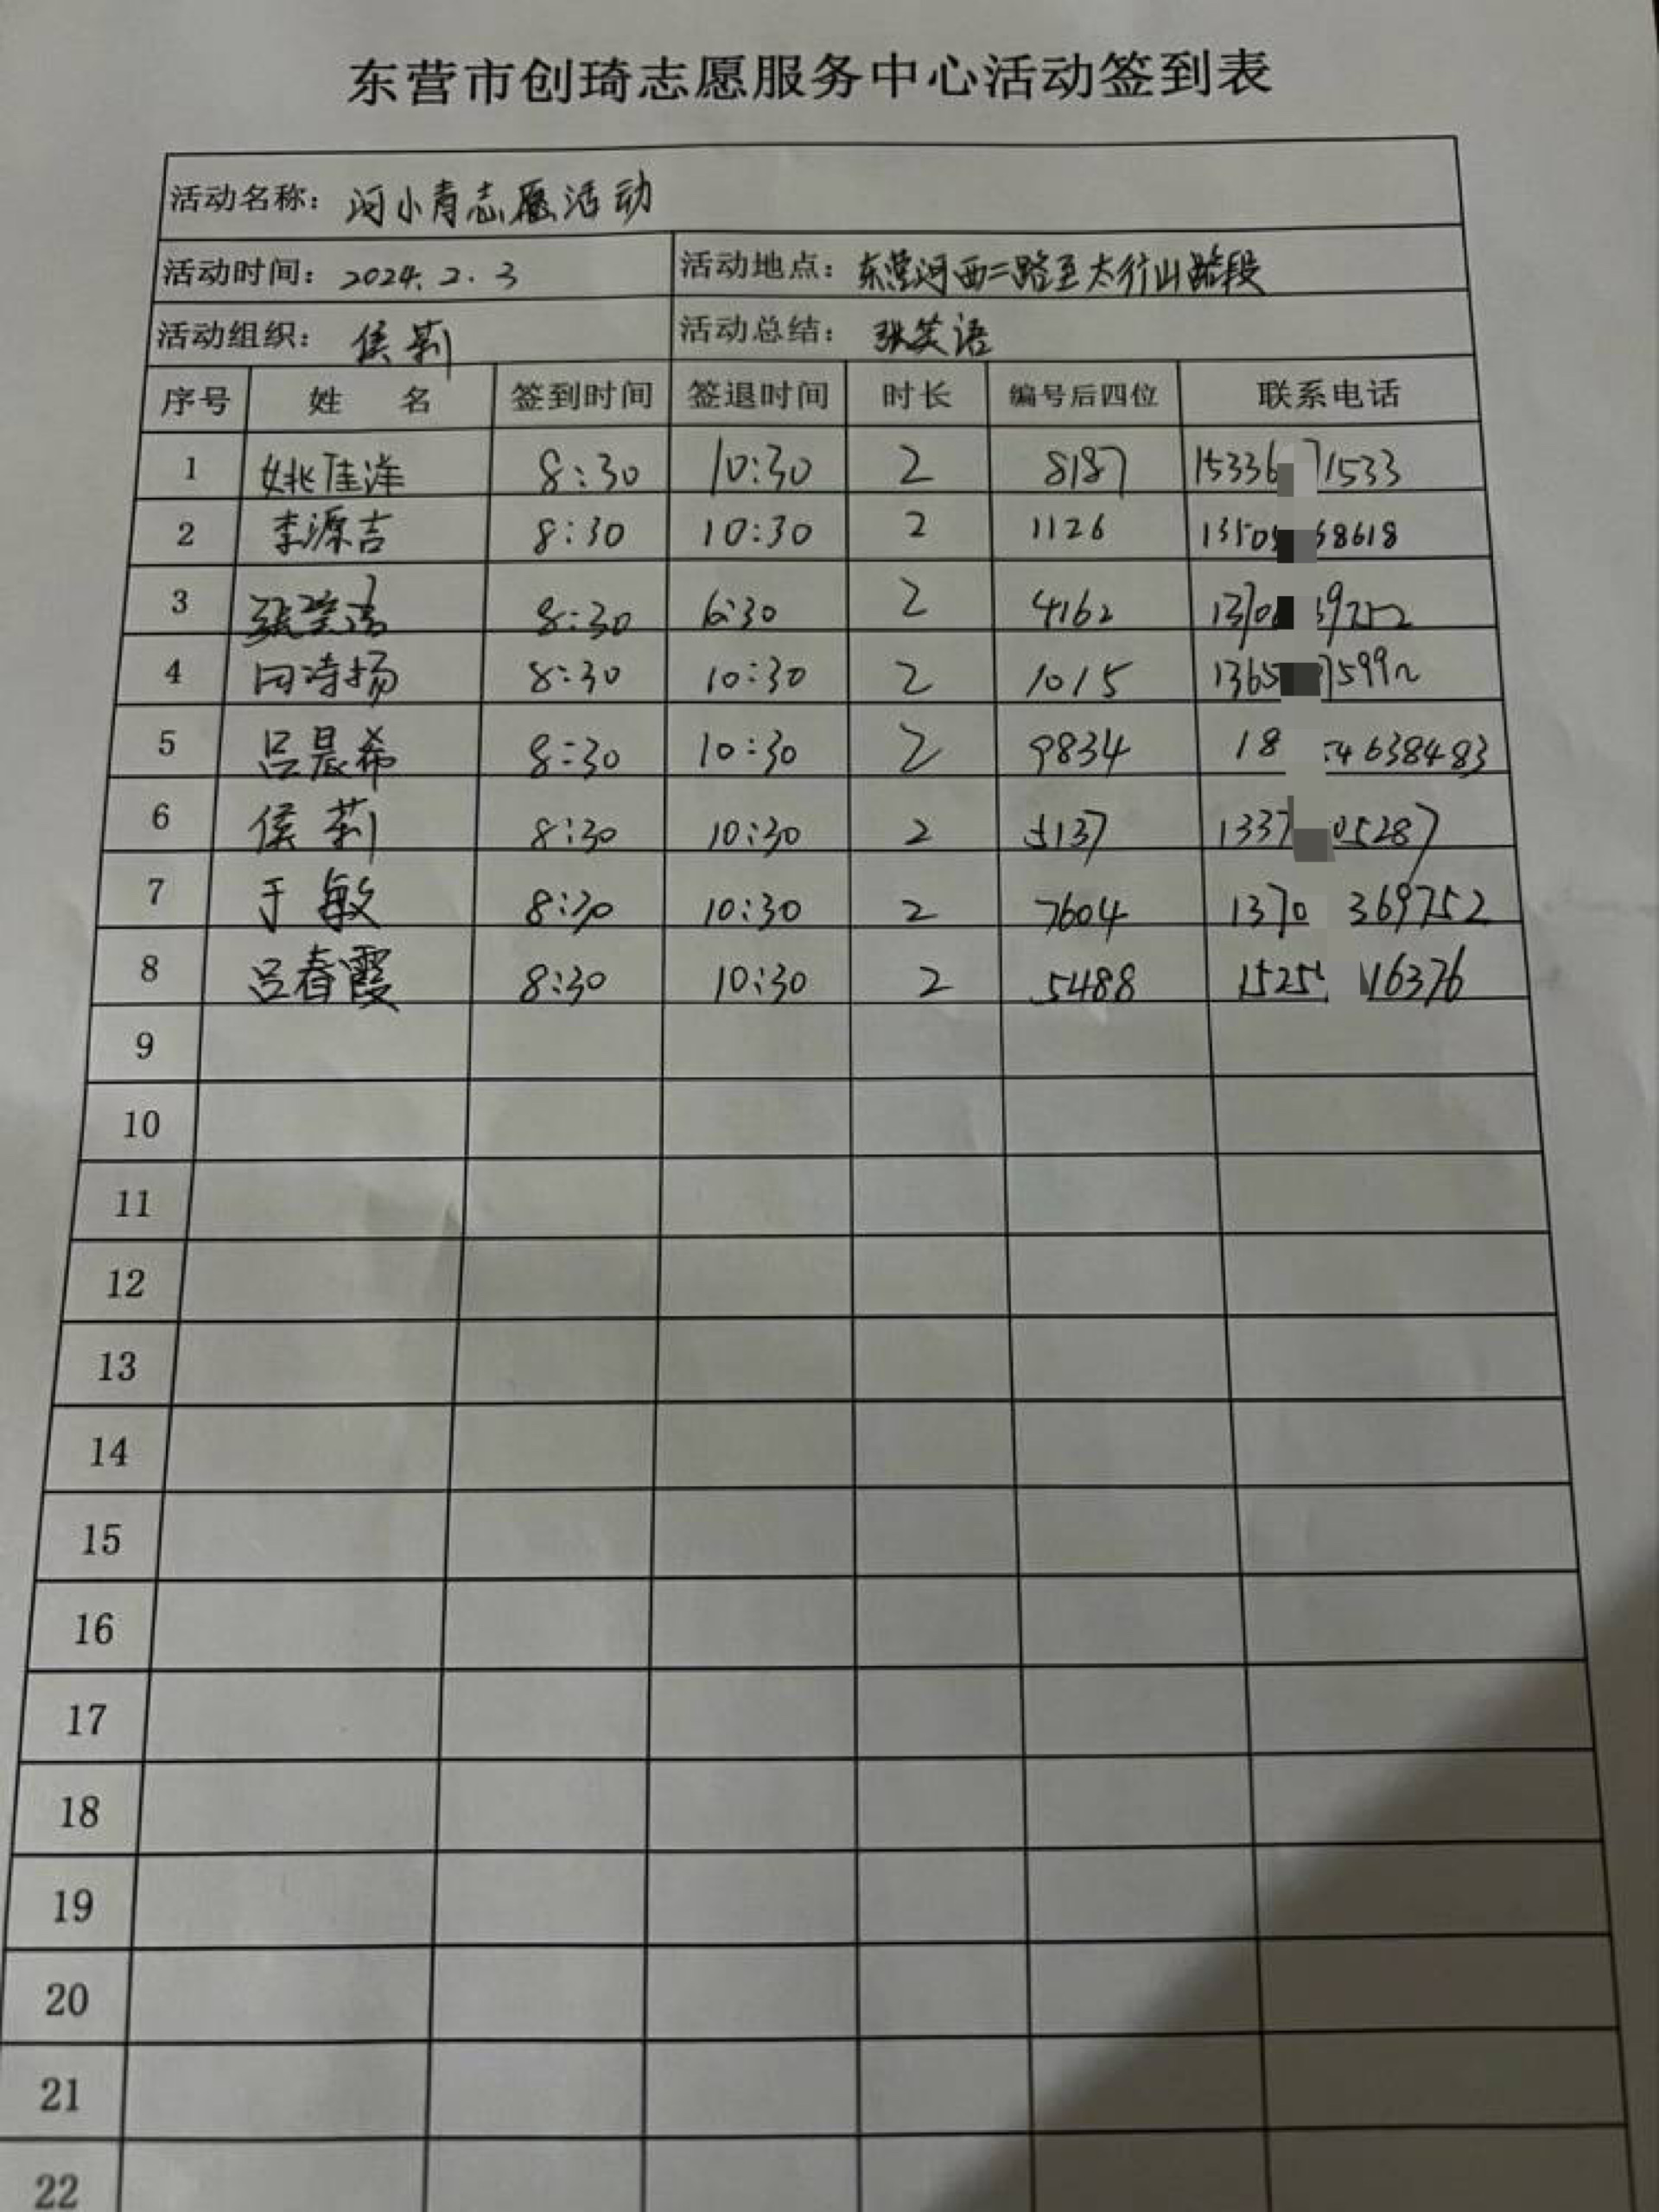 东营市创琦志愿服务中心活动签到表
活动名称： 河小青志愿活动
活动时间： 2024.2.3 活动地点： 东营河西二路至太行山路段
活动组织： 侯莉 活动总结： 张笑语
序号 姓 名 签到时间 签退时间 时长 编号后四位 联系电话
1 姚佳洋 8:30 10:30 2 8187 15336 71533
2 李源吉 8:30 10:30 2 1126 1350 8618
3 8:30 6:30 2 4162 1370 9752
4 诗扬 8:30 10:30 2 1015 1365 7599
5 吕晨希 8:30 10:30 2 9834 18 54638483
6 侯莉 8:30 10:30 2 5137 1337 05287
7 于敏 8:30 10:30 2 7604 1370 369752
8 吕春霞 8:30 10:30 2 5488 1525 16376
9
10
11
12
13
14
15
16
17
18
19
20
21
22